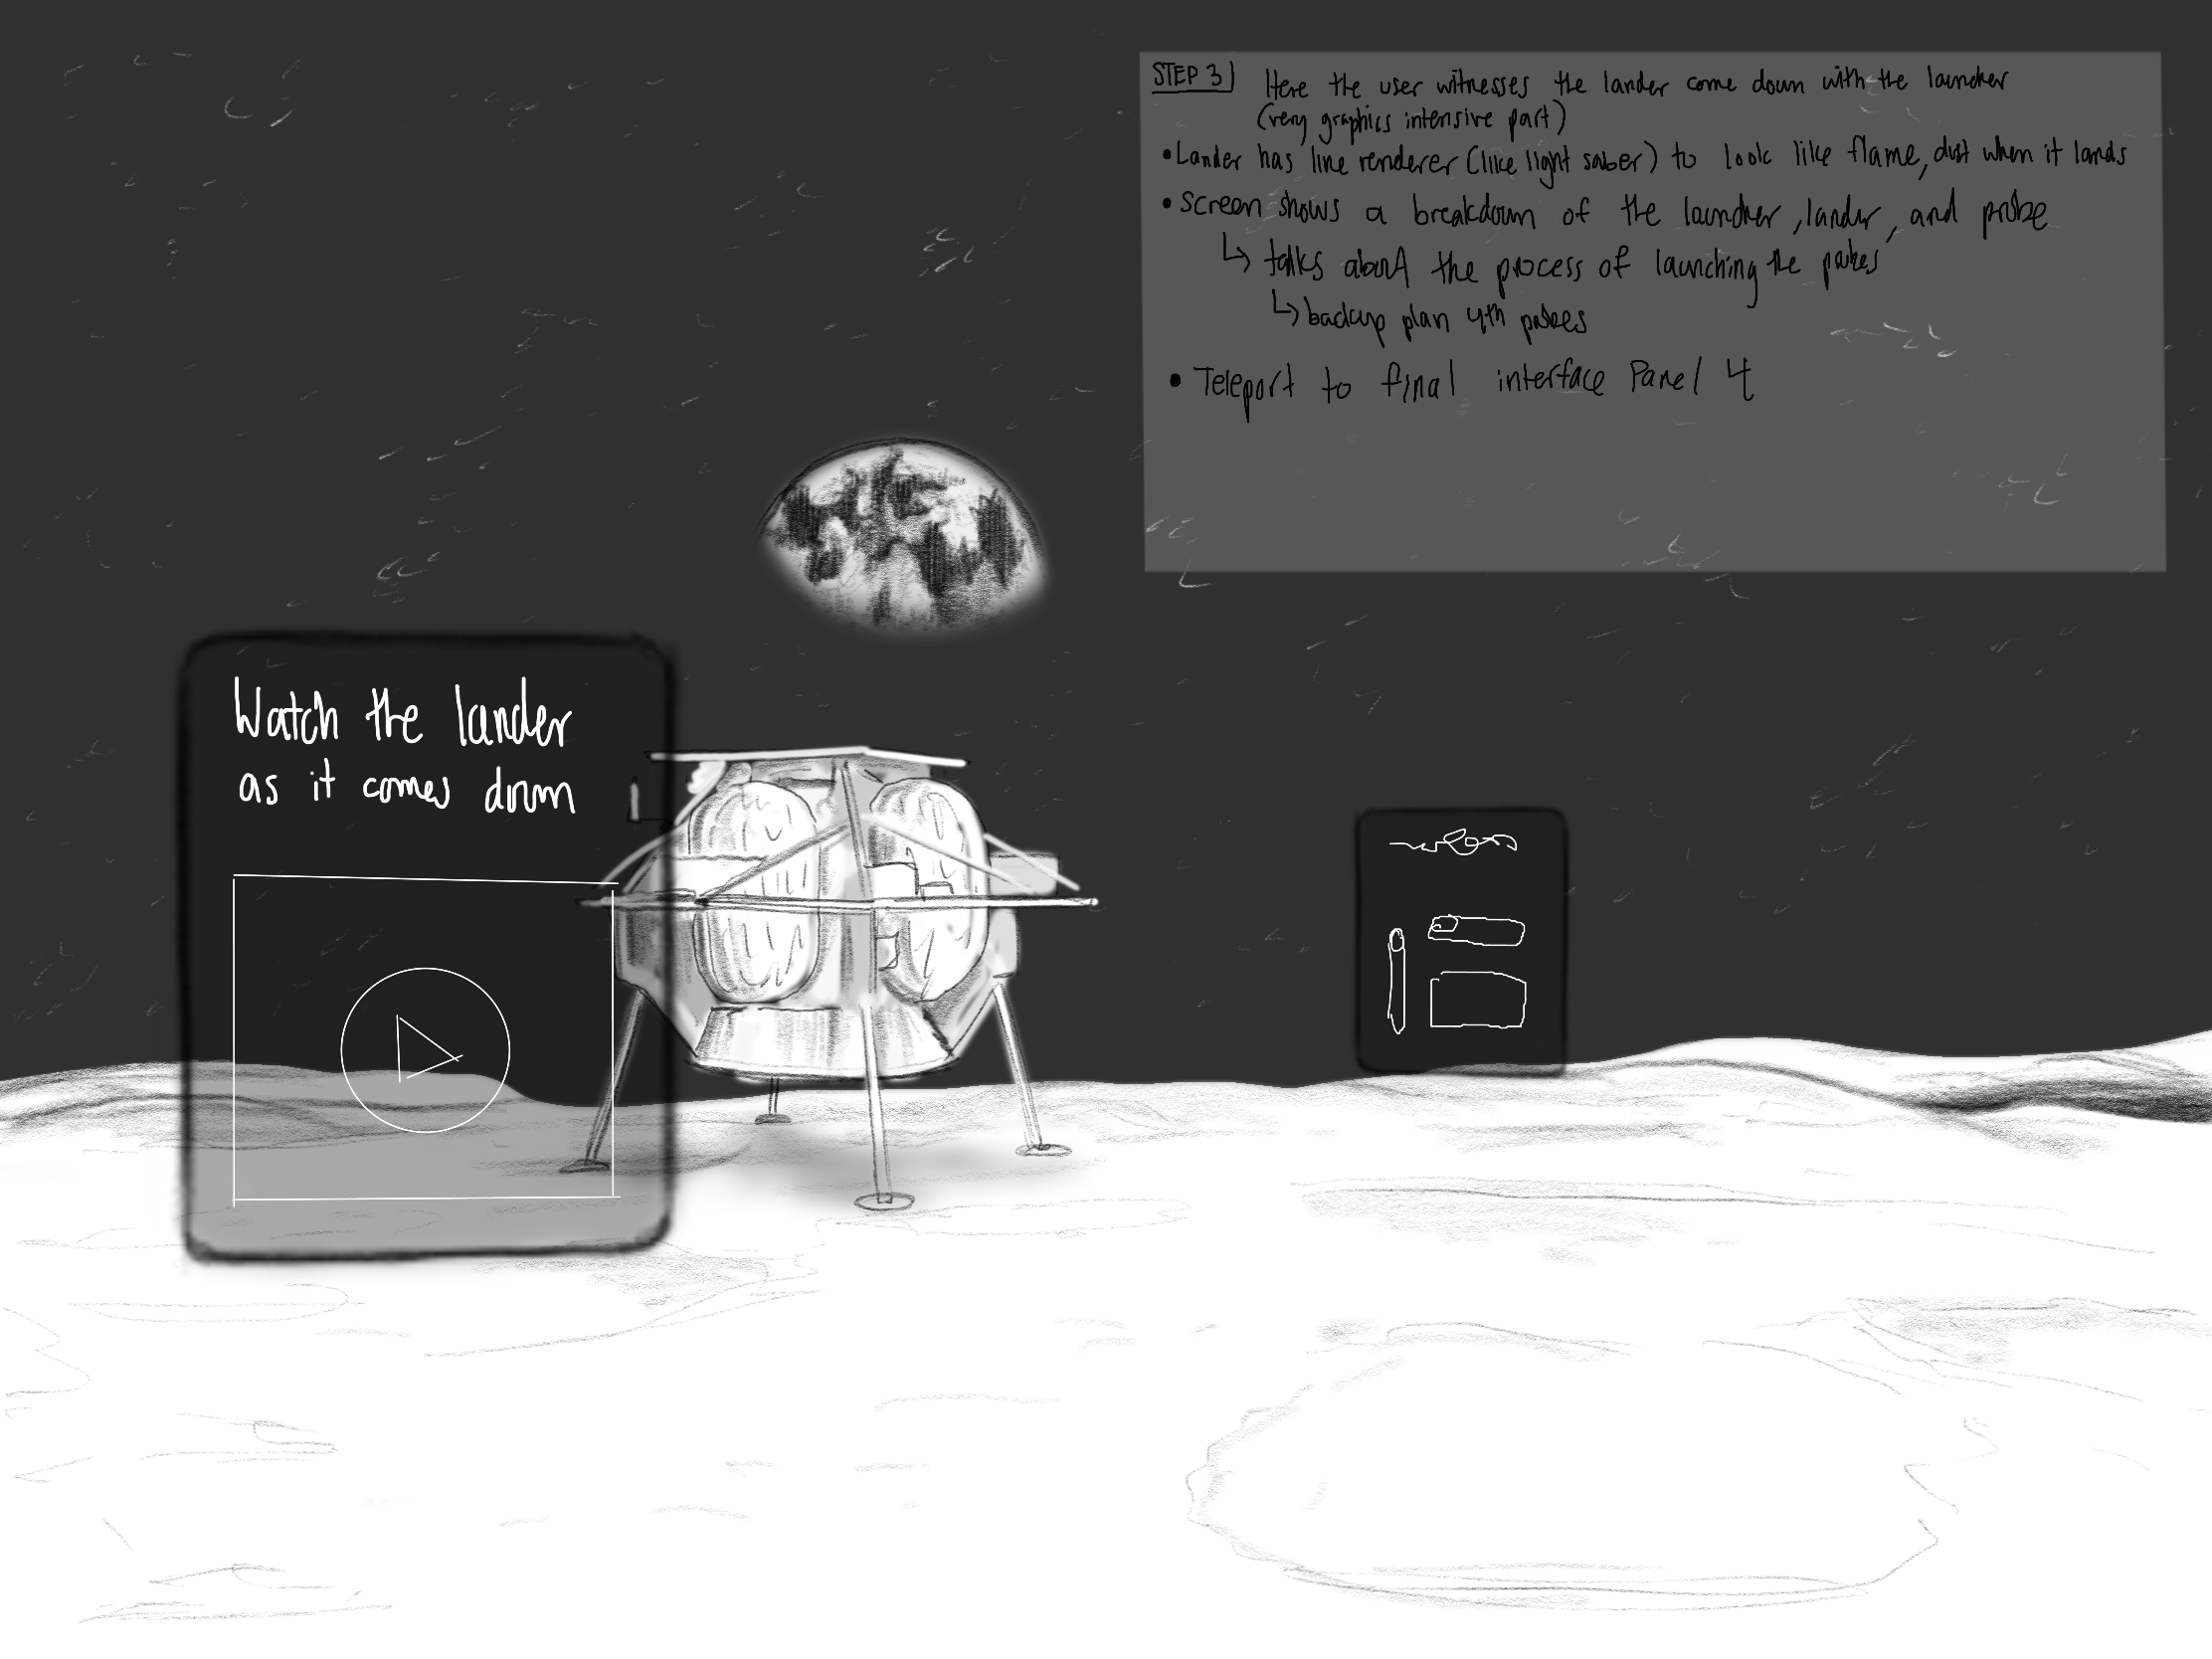 STEP 3) Here the user witnesses the lander come down with the launcher
(very graphics intensive part)
• Lander has line renderer (like light saber) to look like flame, dust when it lands
• Screen shows a breakdown of the launcher, lander, and probe
↳ talks about the process of launching the probes
↳ backup plan with probes
• Teleport to final interface Panel 4
Watch the lander
as it comes down